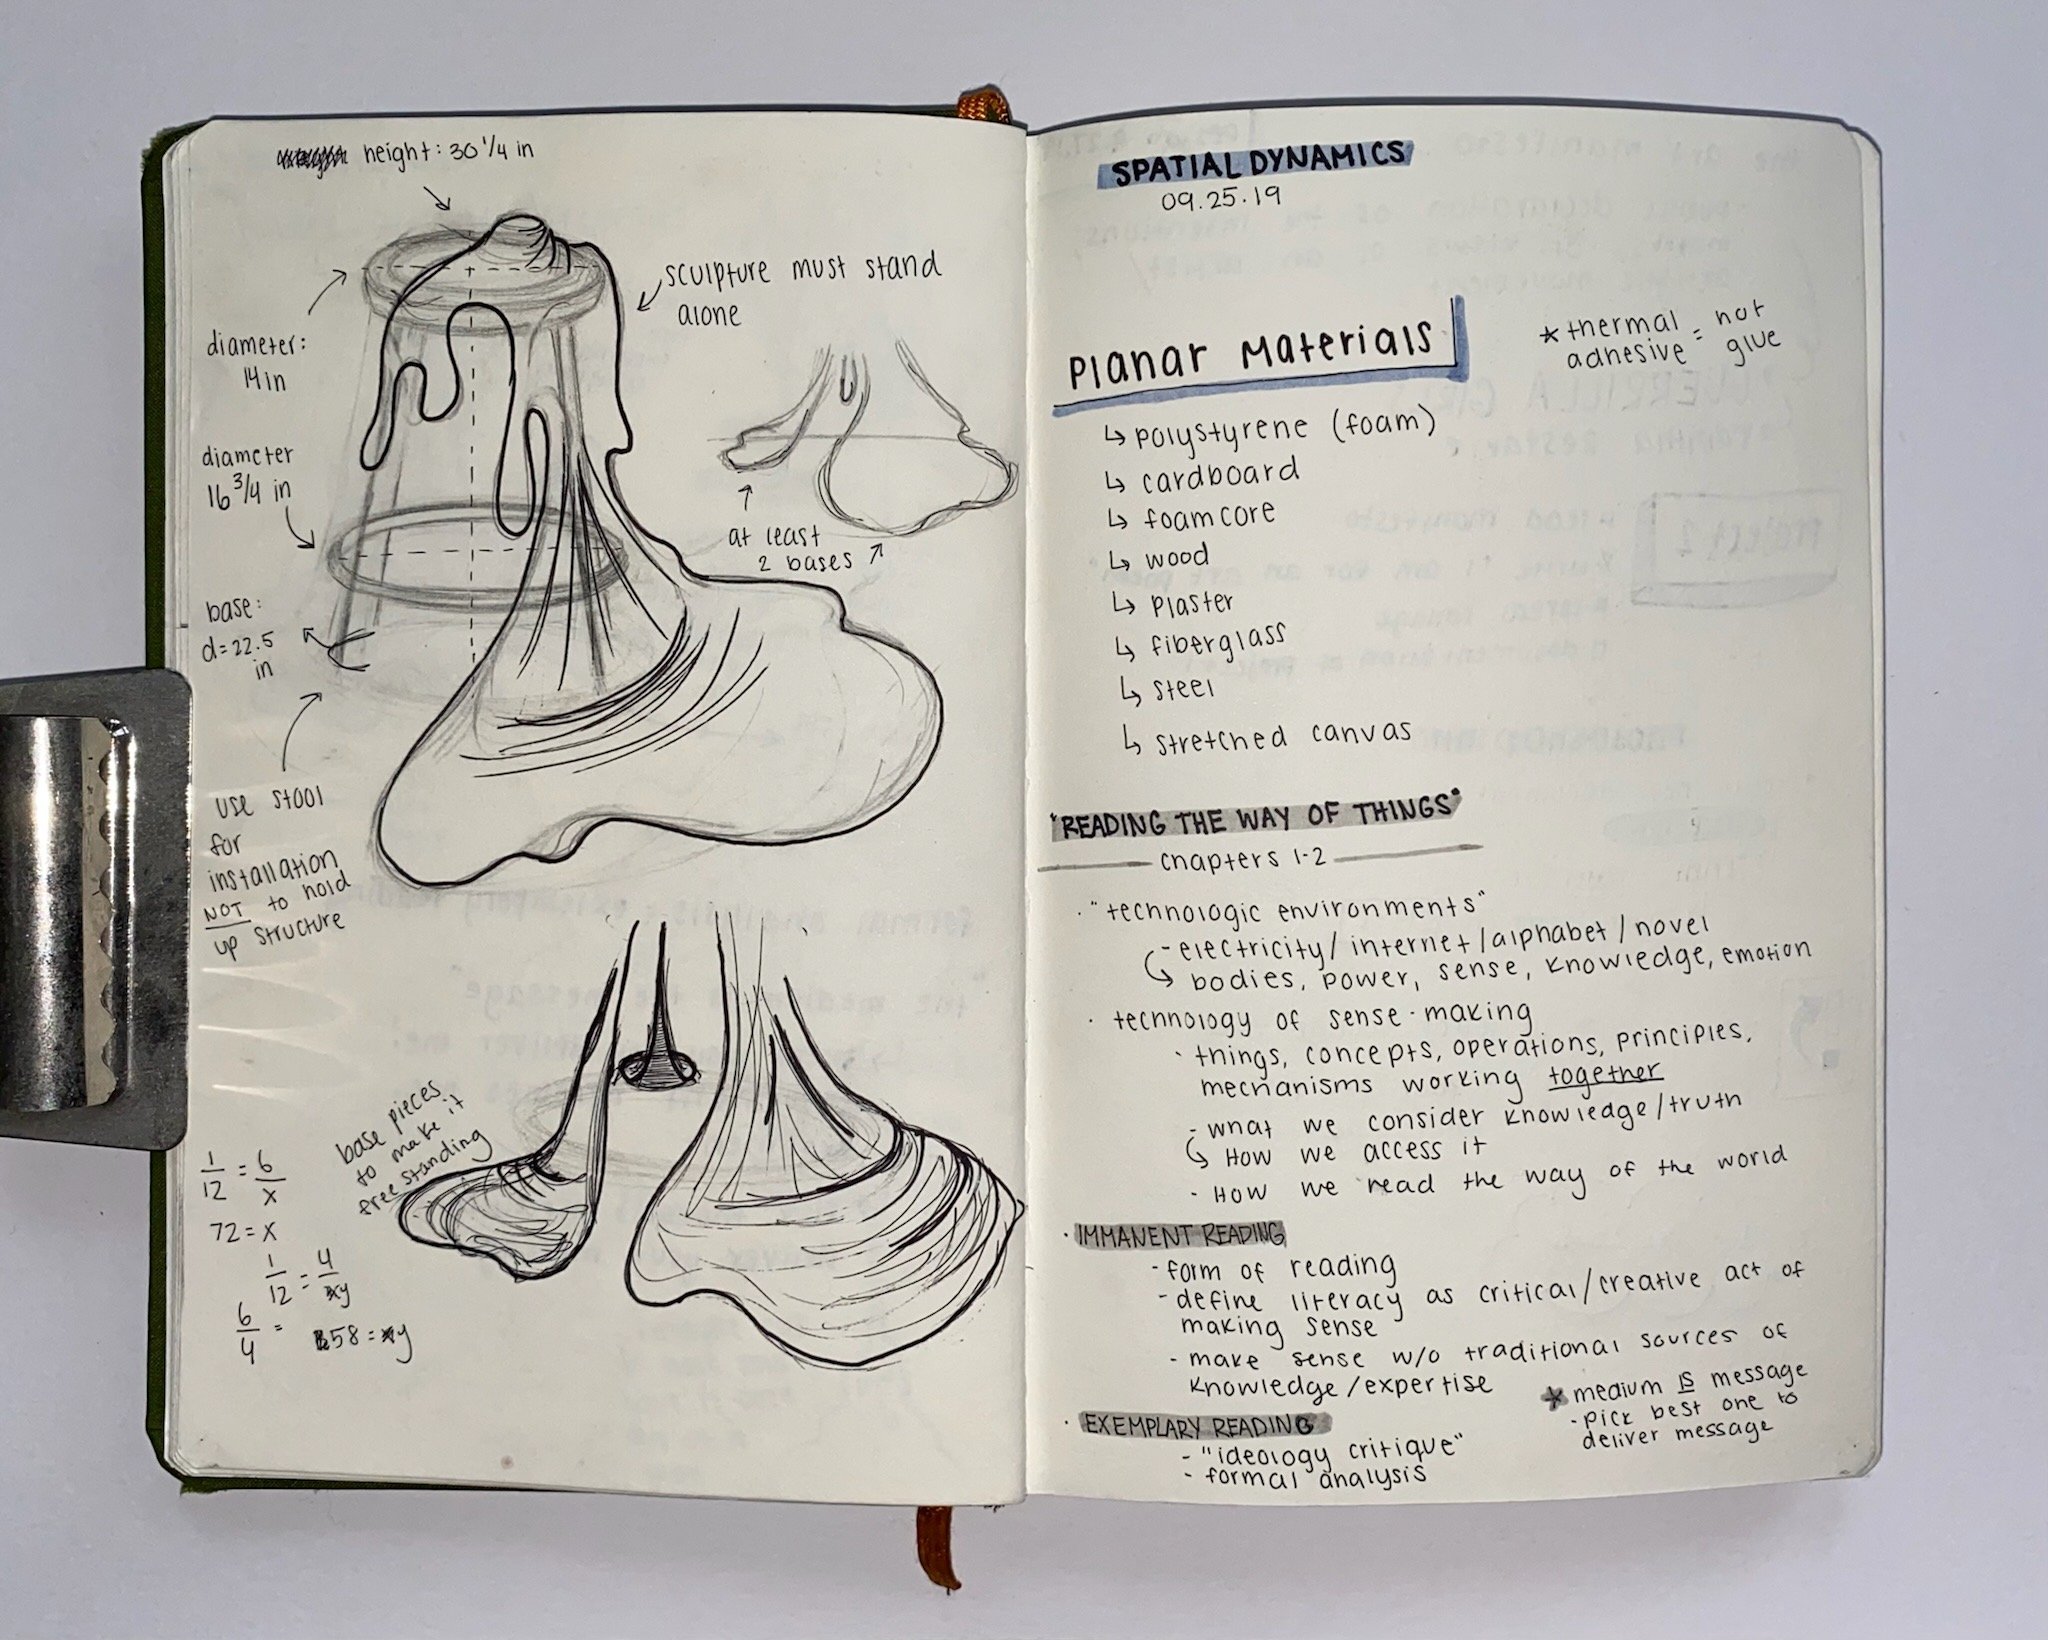 height: 30 1/4 in
sculpture must stand
alone
diameter:
14 in
diameter
16 3/4 in
at least
2 bases
base:
d=22.5
in
use stool
for
installation
NOT to hold
up structure
base pieces
to make it
free standing
1/12 = 6/x
72 = x
1/12 = 4/y
6/4 =
58 = y
SPATIAL DYNAMICS
09.25.19
Planar Materials
* thermal adhesive = not glue
↳ polystyrene (foam)
↳ cardboard
↳ foamcore
↳ wood
↳ plaster
↳ fiberglass
↳ steel
↳ stretched canvas
"READING THE WAY OF THINGS"
chapters 1-2
· "technologic environments"
- electricity/internet/alphabet/novel
↳ bodies, power, sense, knowledge, emotion
· technology of sense-making
· things, concepts, operations, principles,
mechanisms working together
- what we consider knowledge/truth
↳ How we access it
- How we read the way of the world
· IMMANENT READING
- form of reading
- define literacy as critical/creative act of
making sense
- make sense w/o traditional sources of
knowledge/expertise
* medium IS message
- pick best one to
deliver message
· EXEMPLARY READING
- "ideology critique"
- formal analysis